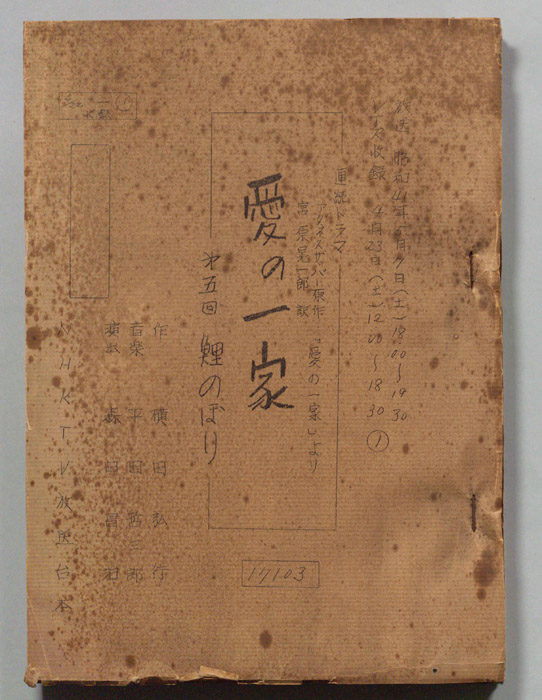 放送 昭和41年5月7日(土)18.00〜19.30
V名収録 4月23日(土)12.00〜18.30 ①
連続ドラマ
アグネスザッパー原作「愛の一家」より
宮原晃一郎 訳
愛の一家
第五回 鯉のぼり
作 横田弘行
音楽 平田
演出
NHKTV放送台本
17103